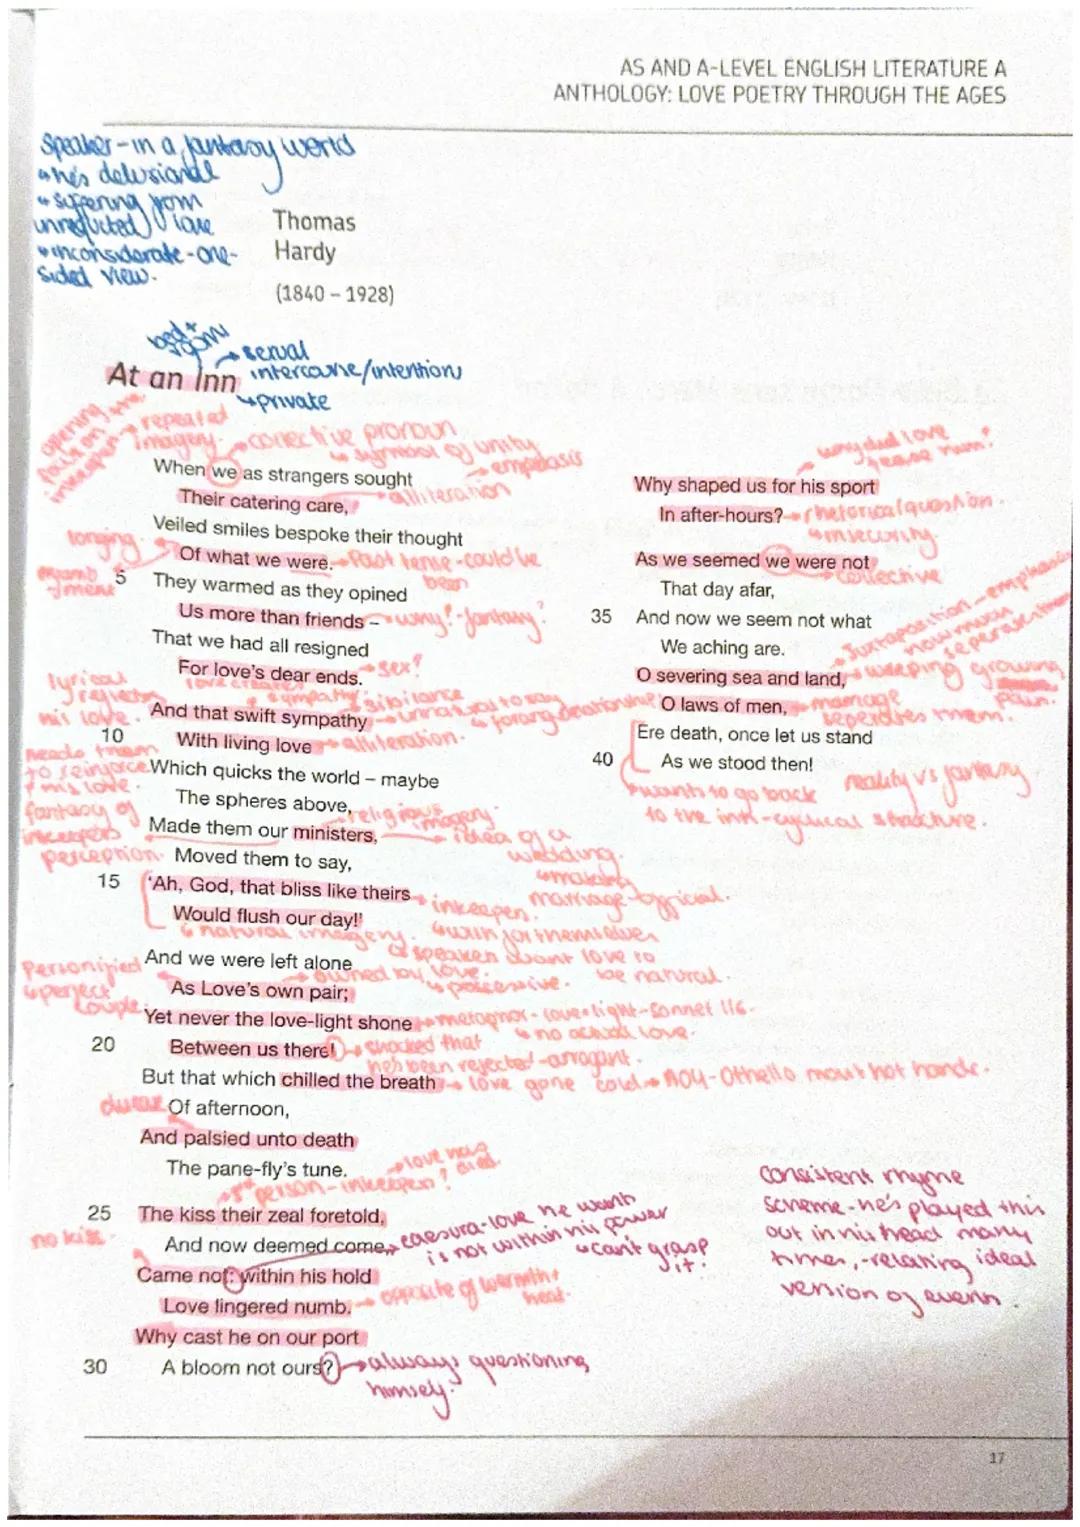 AS AND A-LEVEL ENGLISH LITERATURE A
ANTHOLOGY: LOVE POETRY THROUGH THE AGES
Speaker-in a fantasy world
he's delusional
suffering from
unrequited love
inconsiderate-one-
sided view.
Thomas
Hardy
(1840 – 1928)
bed +
room
sexual
intercourse/intention
private
At an Inn
opening
focus on
innkeeper
repeated
imagery.
collective pronoun
symbol of unity
emphasis
When we as strangers sought
Their catering care,
alliteration
Veiled smiles bespoke their thought
longing.
Of what we were.
Past tense-could've
been
5 They warmed as they opined
Us more than friends –
why?-fantasy?
That we had all resigned
For love's dear ends.
sex?
lyrical
his love.
love creates
sympathy
And that swift sympathy
unnatural to say
10 With living love
alliteration.
needs them
to reinforce
his love.
Which quicks the world – maybe
The spheres above,
religious
imagery.
fantasy of
inkeepers
perception.
Made them our ministers,
idea of a
wedding.
making
marriage-official.
Moved them to say,
15 'Ah, God, that bliss like theirs
inkeeper.
Would flush our day!'
natural imagery.
wish for themselves
speaker want love to
be natural.
And we were left alone
Personified
perfect
couple.
owned by love.
possessive.
As Love's own pair;
Yet never the love-light shone
metaphor-love=light-sonnet 116.
no actual love.
20 Between us there!
shocked that
he's been rejected-arrogant.
But that which chilled the breath
love gone cold AO4-Othello moist hot hands.
Of afternoon,
And palsied unto death
The pane-fly's tune.
love has
died.
3rd person-inkeeper?
25 The kiss their zeal foretold,
no kiss.
And now deemed come,
caesura-love he wants
is not within his power
can't grasp
it.
Came not: within his hold
Love lingered numb.
opposite of warmth+
heat.
Why cast he on our port
30 A bloom not ours?
always questioning
himself.
why did love
tease him?
Why shaped us for his sport
In after-hours?
rhetorical question.
insecurity.
As we seemed we were not
collective
That day afar,
35 And now we seem not what
We aching are.
Juxtaposition-emphasis
how much
O severing sea and land,
weeping growing
pain.
O laws of men,
marriage
seperates them.
Ere death, once let us stand
40 As we stood then!
wants to go back
to the inn-cyclical structure.
reality vs fantasy
consistent rhyme
scheme-he's played this
out in his head many
times,-relating ideal
version of events.
17